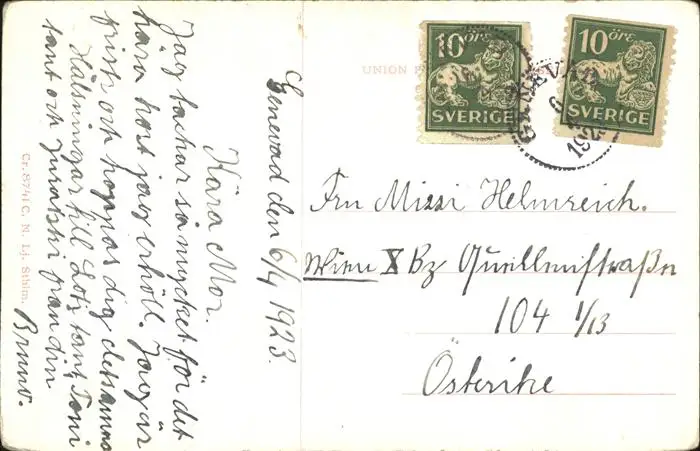 Genevad den 6/4 1923.
Kära Mor.
Jag tackar så mycket för det
kära kort jag erhöll. Jag är
frisk och hoppas dig detsamma
Hälsningar till Lotz tant, Toni
tant och från din
Bruno.
Cr. 8741 C. N. Lj. Sthlm.
UNION
10 ÖRE
SVERIGE
10 ÖRE
SVERIGE
GENEVAD
6
1923
Fru Missi Helmreich.
Wien X Bz Quellenstraße
104 1/13
Österike